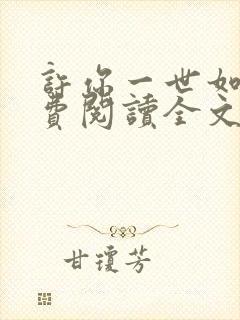 許你一世如
費閱讀全文
甘瓊芳